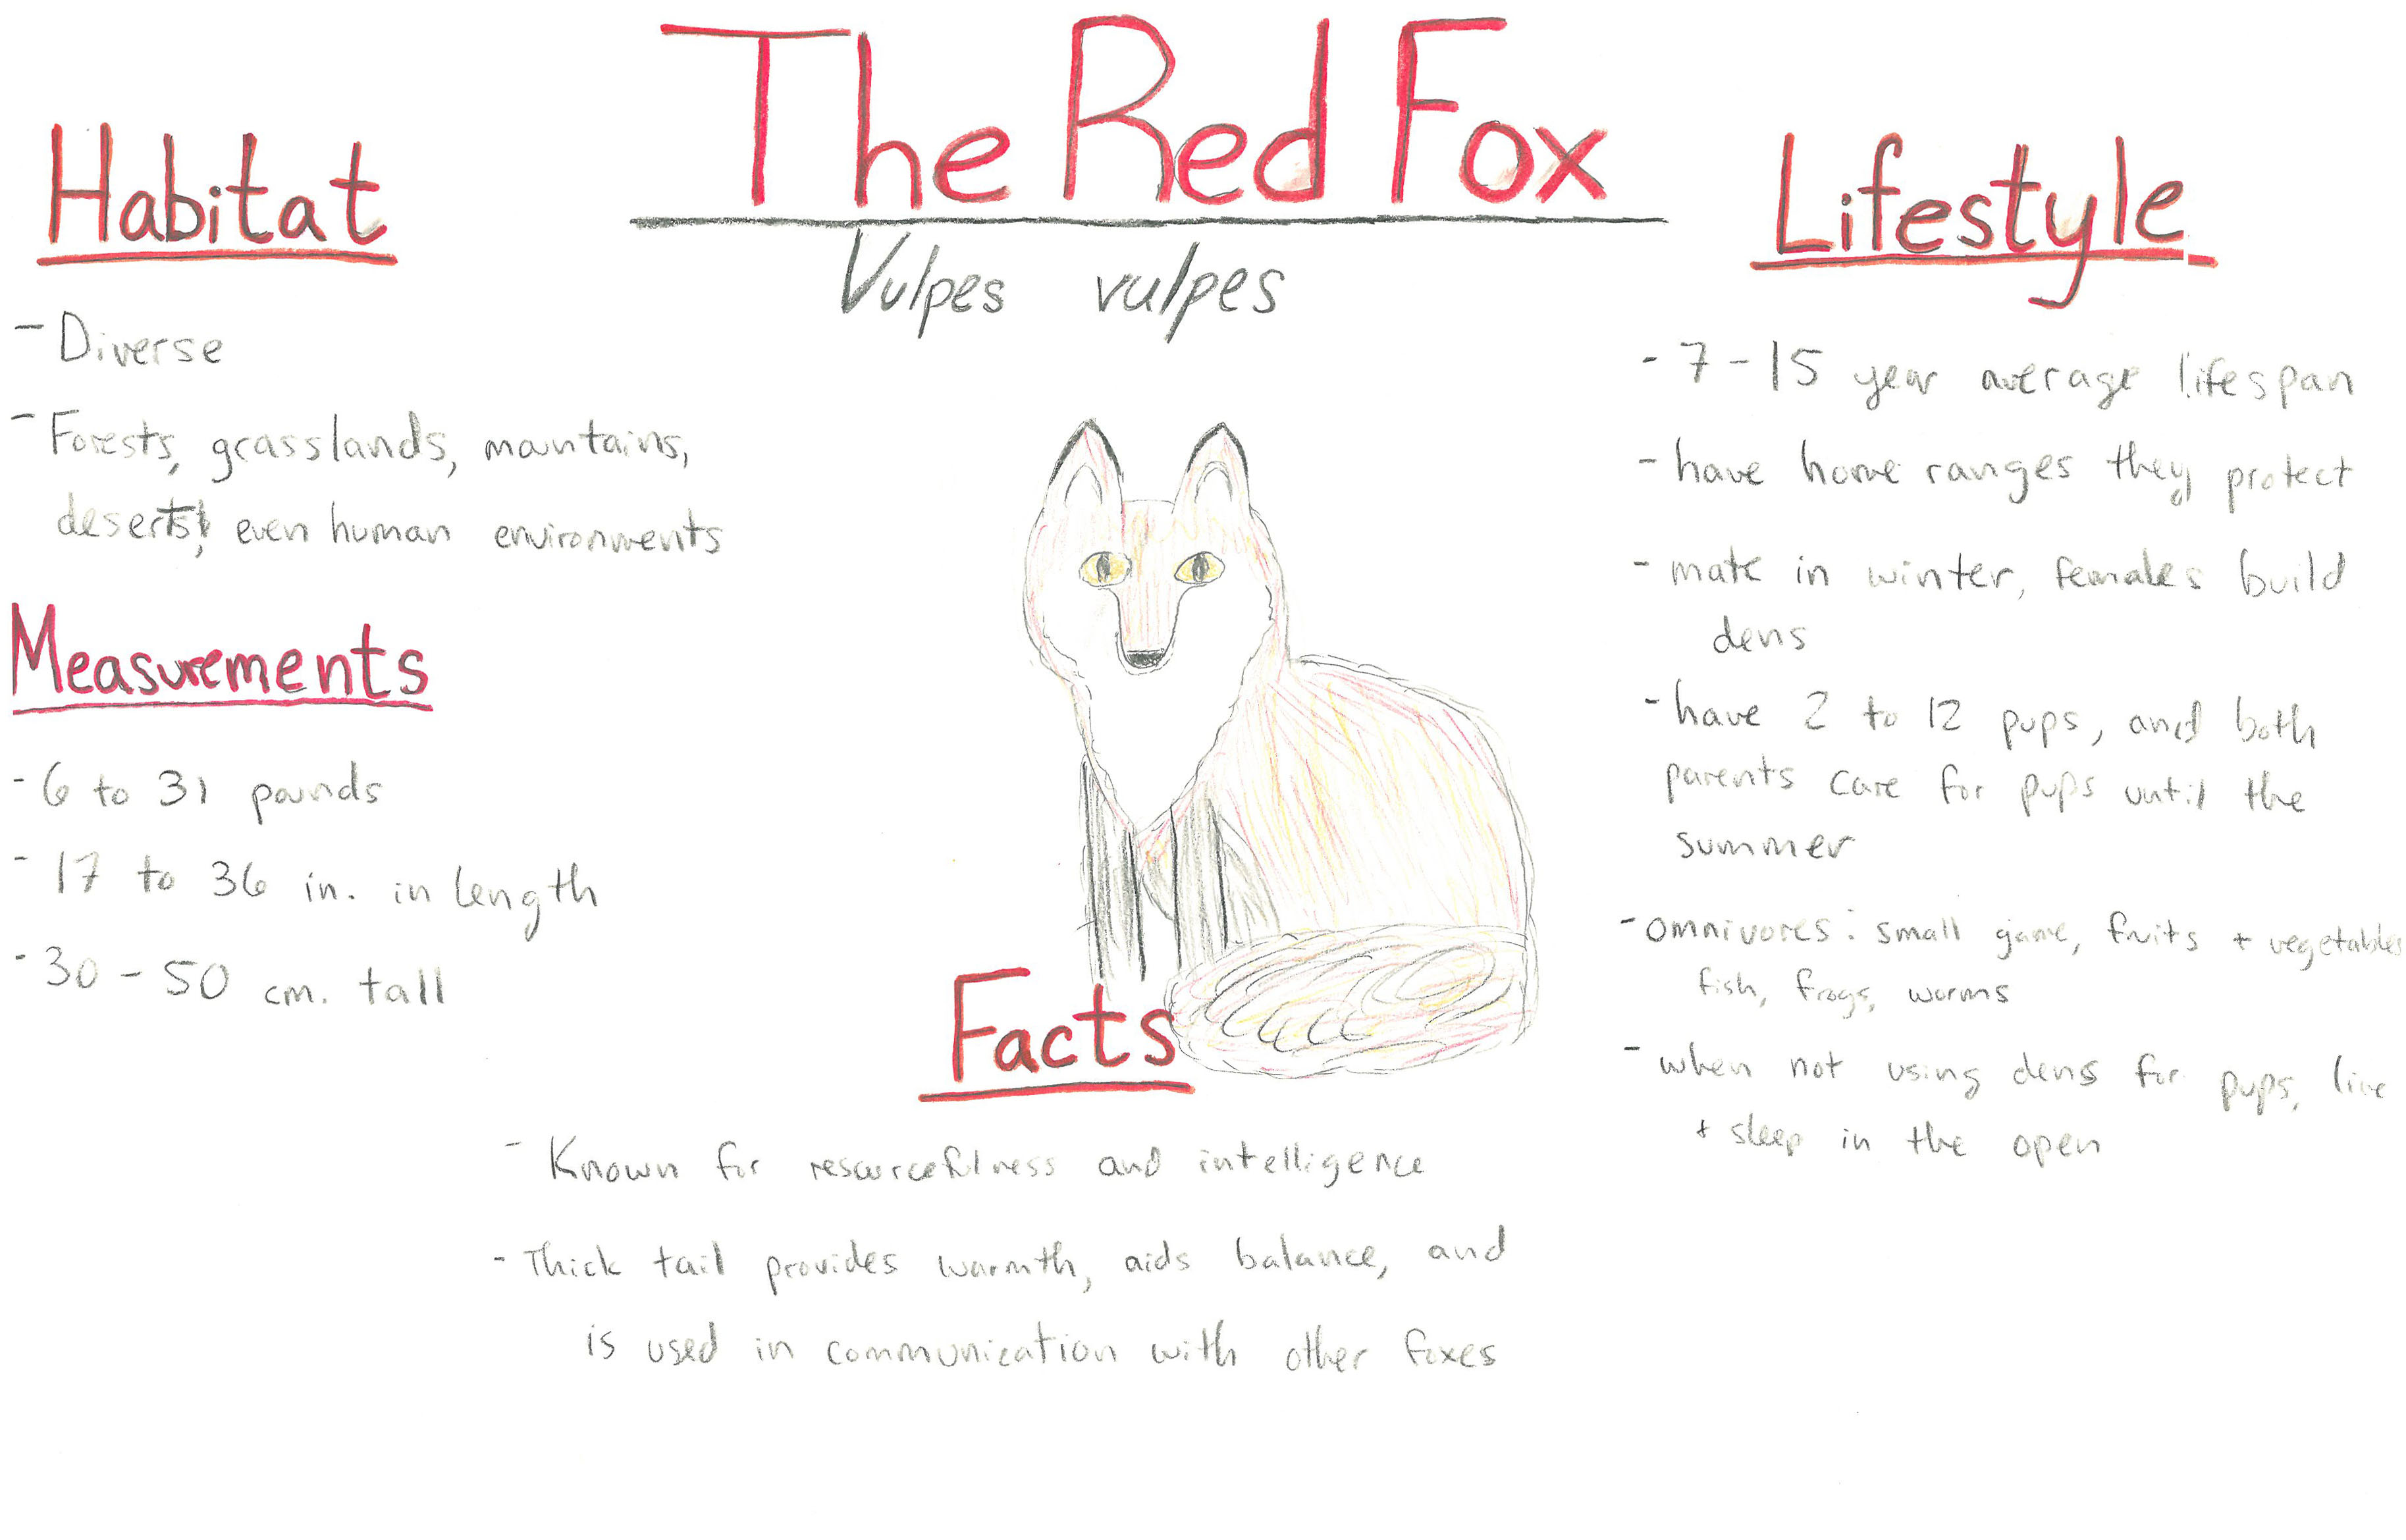 The Red Fox
Vulpes vulpes
Habitat
- Diverse
- Forests, grasslands, mountains,
deserts, even human environments
Measurements
- 6 to 31 pounds
- 17 to 36 in. in length
- 30 - 50 cm. tall
Facts
- Known for resourcefulness and intelligence
- Thick tail provides warmth, aids balance, and
is used in communication with other foxes
Lifestyle
- 7 - 15 year average lifespan
- have home ranges they protect
- mate in winter, females build
dens
- have 2 to 12 pups, and both
parents care for pups until the
summer
- omnivores: small game, fruits + vegetables
fish, frogs, worms
- when not using dens for pups, live
+ sleep in the open